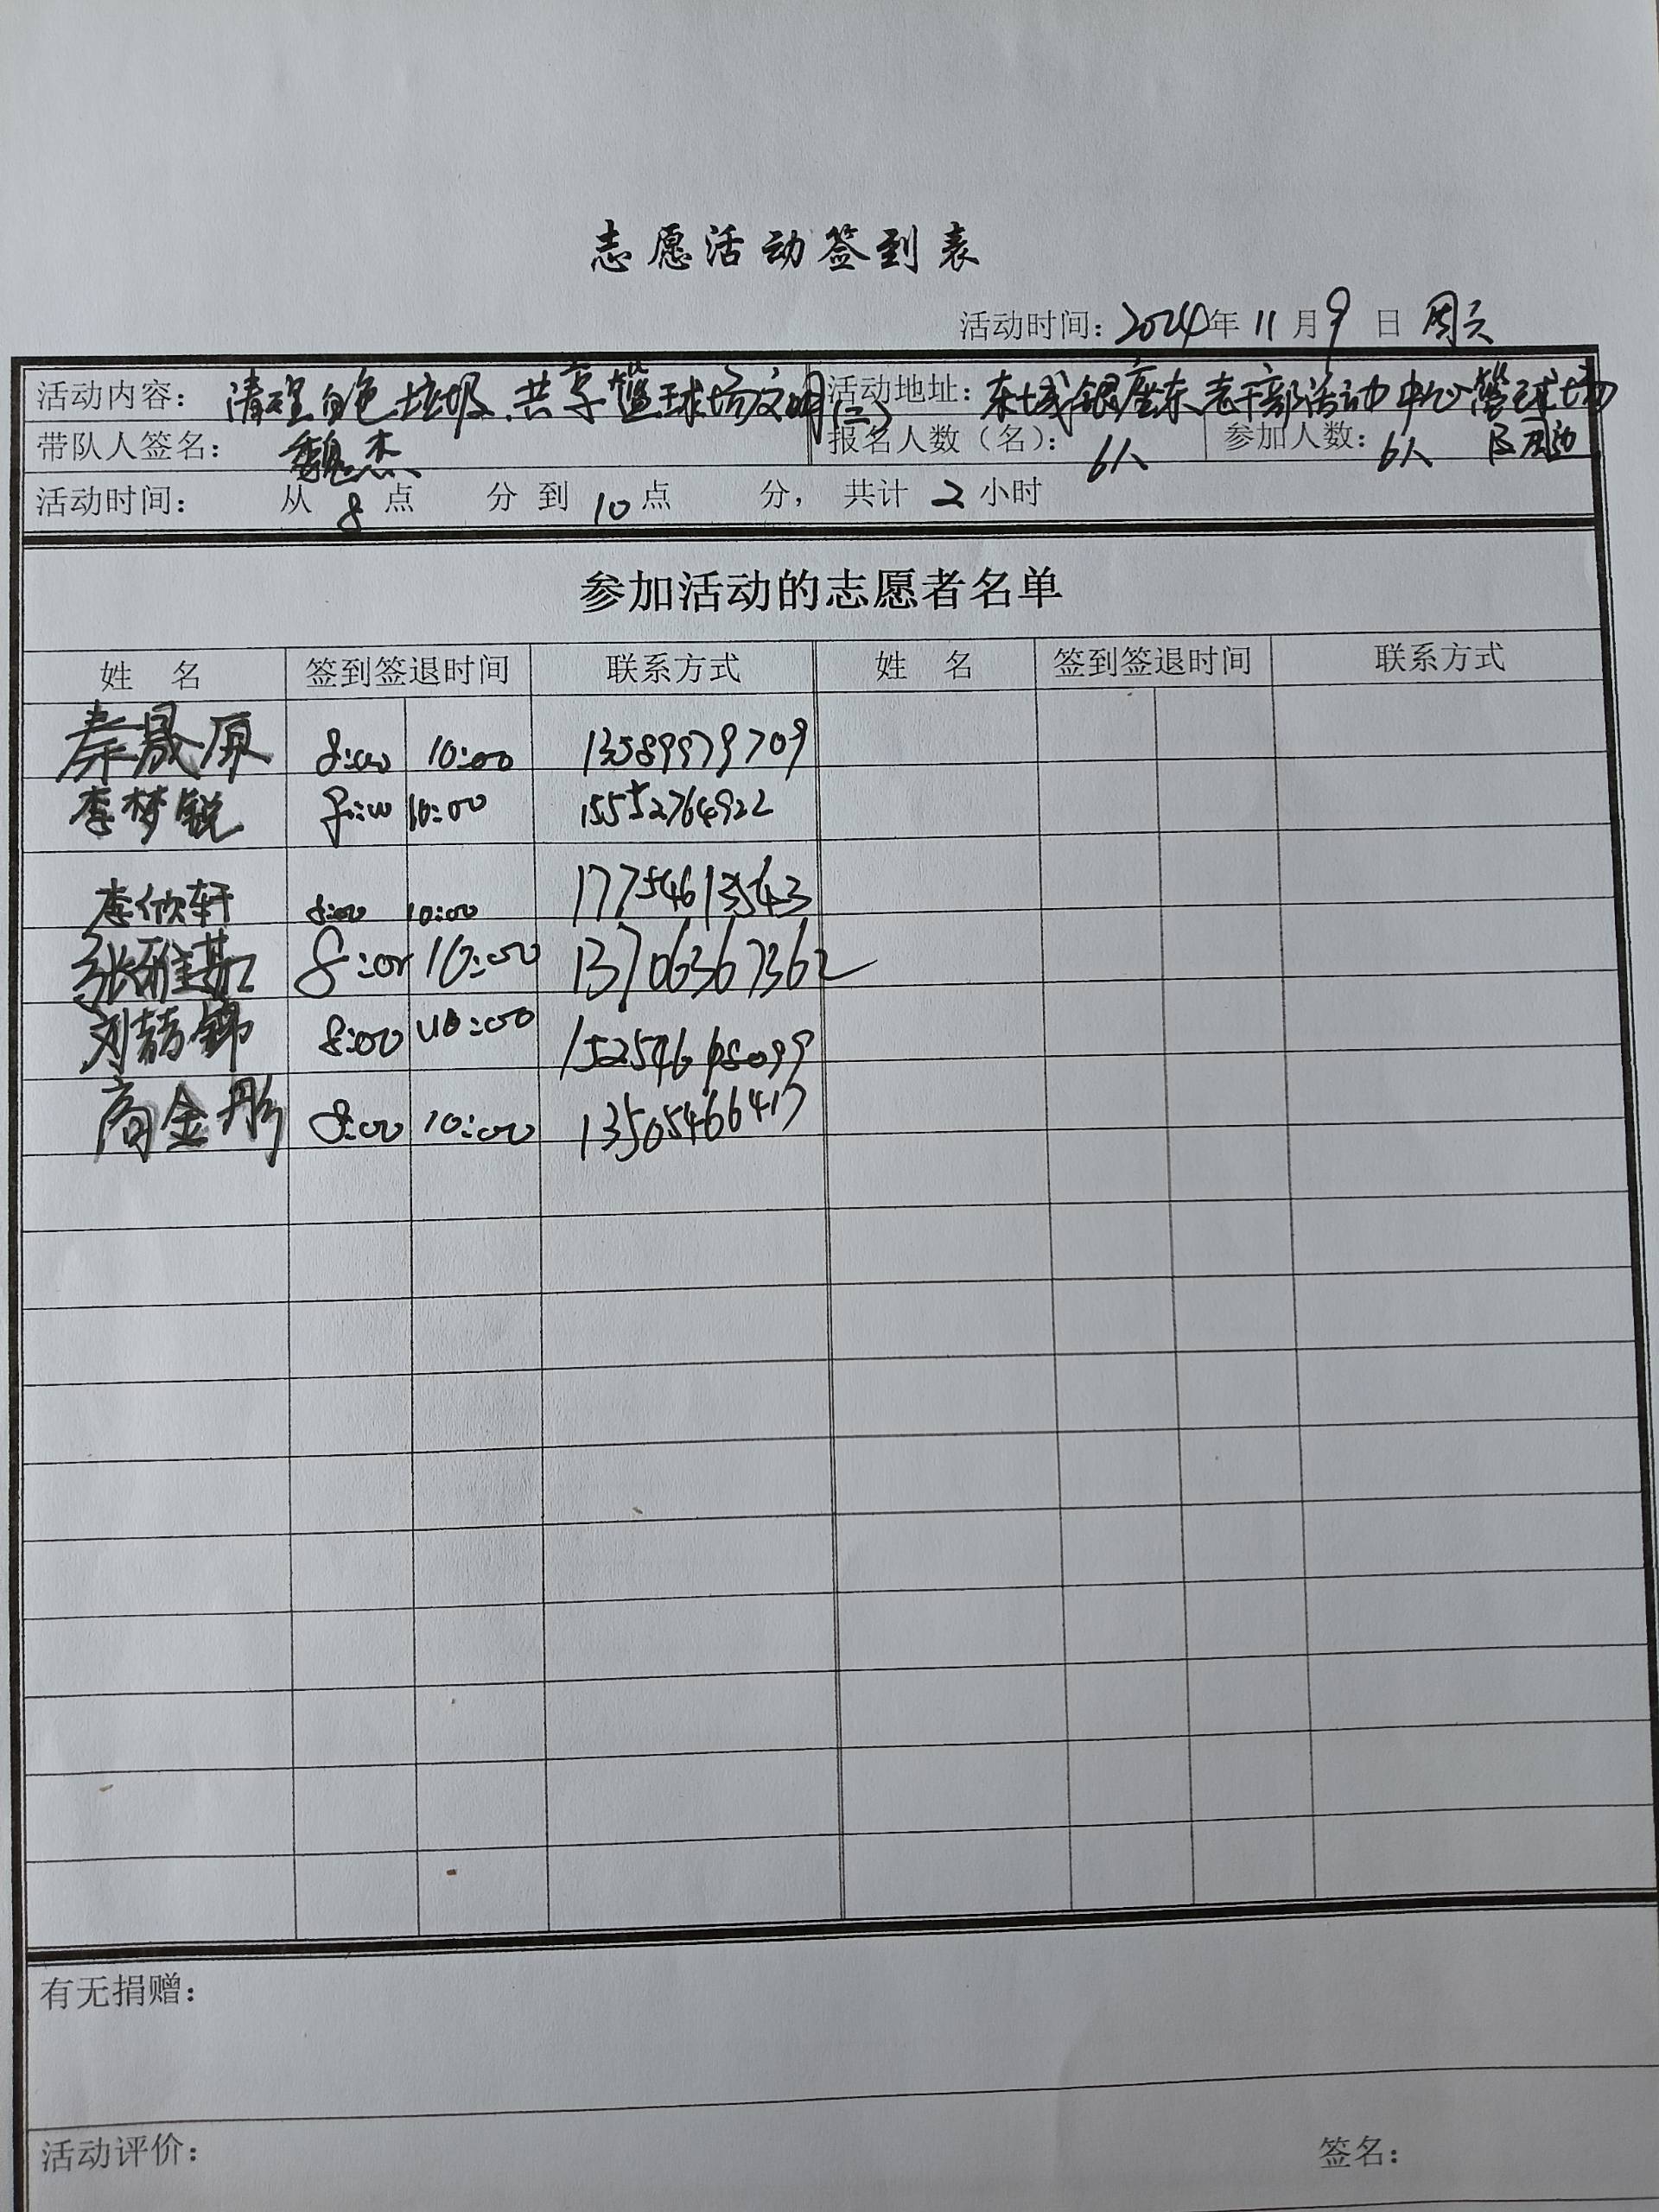 志愿活动签到表
活动时间：2024年11月9日 周六
活动内容：清理白色垃圾，共享篮球场文明（三） 活动地址：东城银座东老干部活动中心篮球场
及周边
带队人签名：魏杰 报名人数（名）：6人 参加人数：6人
活动时间： 从8点 分到10点 分， 共计2小时
参加活动的志愿者名单
姓 名 签到签退时间 联系方式 姓 名 签到签退时间 联系方式
秦晟原 8:00 10:00 13589979709
李梦锐 8:00 10:00 15552764922
李欣轩 8:00 10:00 17754613543
张雅茹 8:00 10:00 13706367362
刘喆锦 8:00 10:00
商金彤 8:00 10:00 13505466417
有无捐赠：
活动评价： 签名：